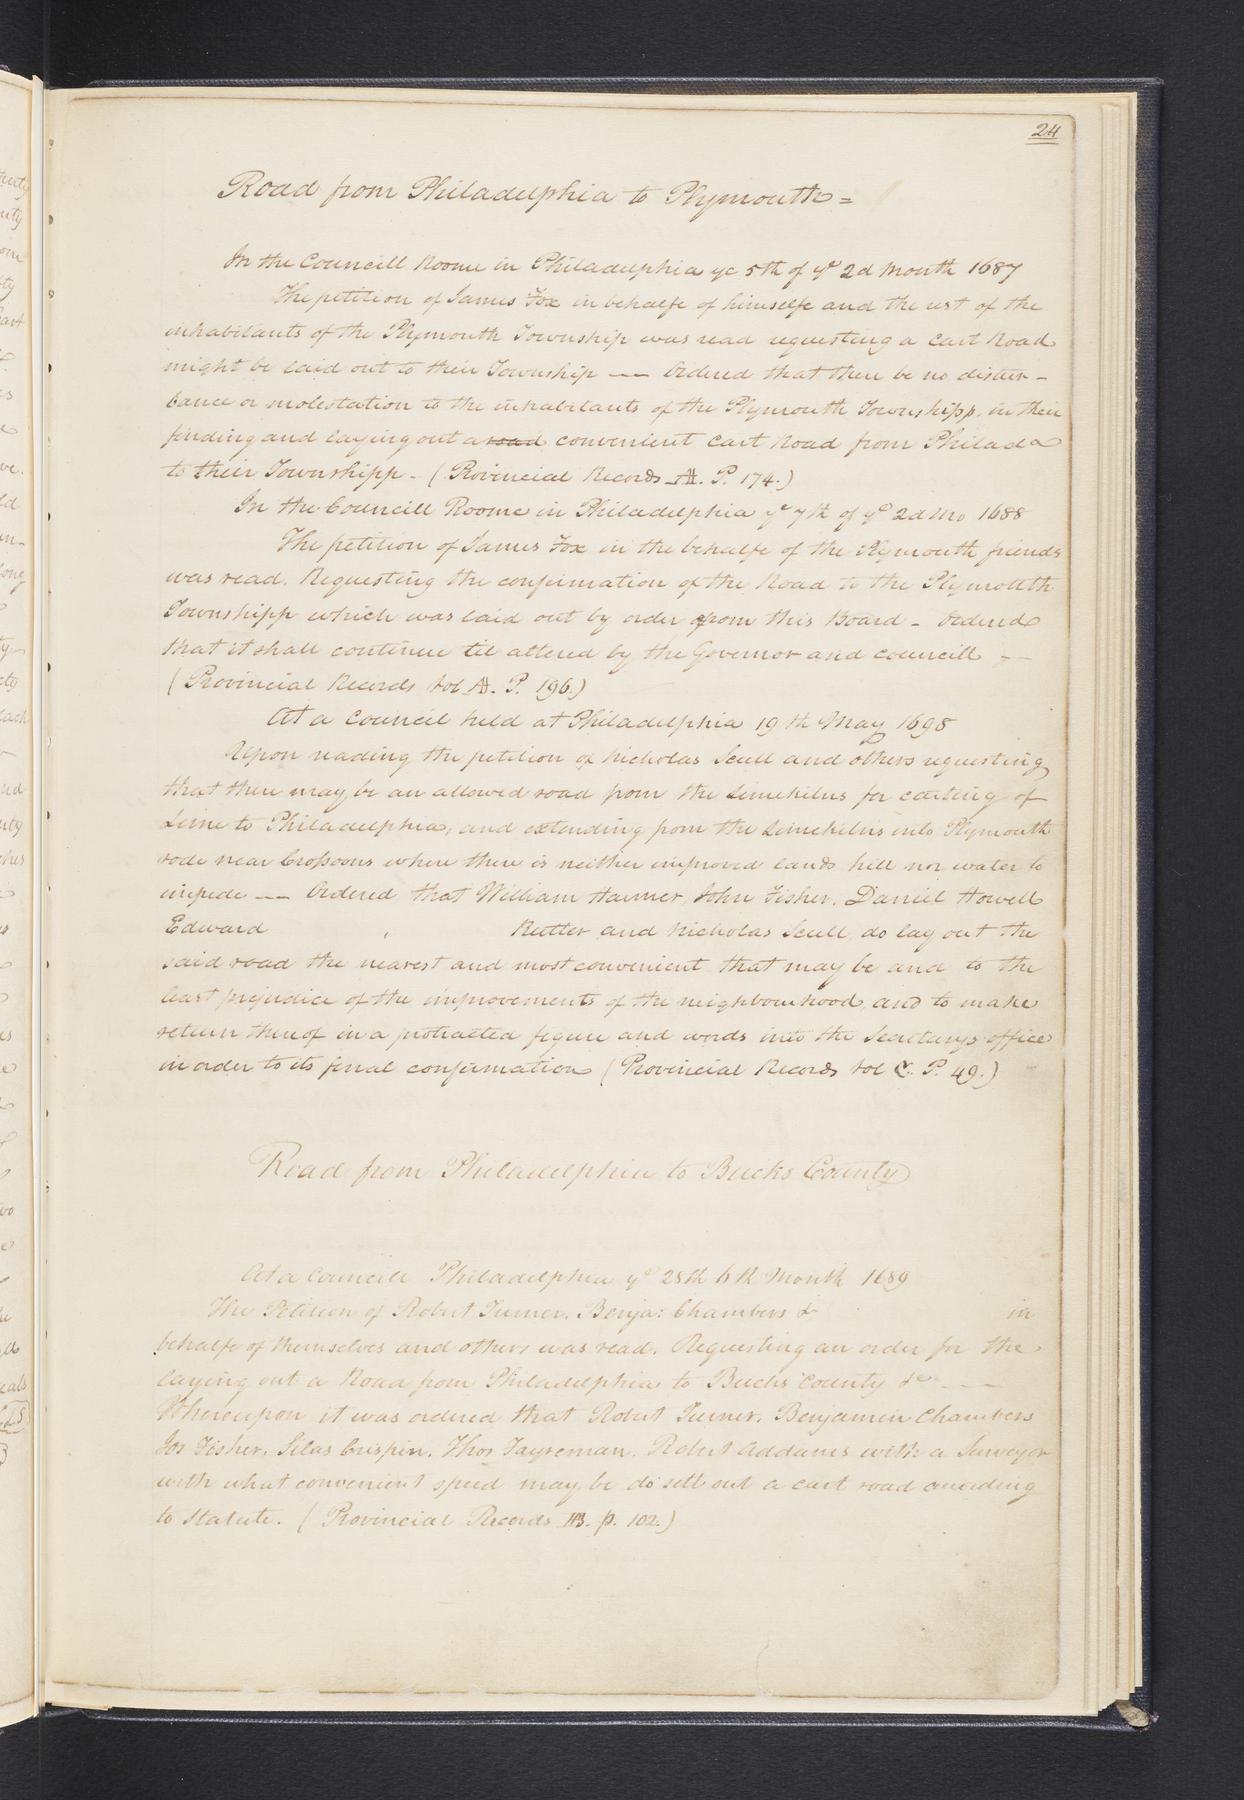 24
Road from Philadelphia to Plymouth =
In the Councill Roome in Philadelphia ye 5th of ye 2d Month 1687
The petition of James Fox in behalfe of himselfe and the rest of the
inhabitants of the Plymouth Township was read requesting a Cart Road
might be laid out to their Township —— Ordered that there be no distur-
bance or molestation to the inhabitants of the Plymouth Townshipp, in their
finding and laying out a road convenient Cart Road from Philada
to their Townshipp - (Provincial Records A. P. 174.)
In the Councill Roome in Philadelphia ye 7th of ye 2d Mo 1688
The petition of James Fox in the behalfe of the Plymouth friends
was read. Requesting the confirmation of the Road to the Plymouth
Townshipp which was laid out by order from this Board - Ordered
that it shall continue til altered by the Governor and councill —
(Provincial Records Vol A. P. 196.)
At a Council held at Philadelphia 19th May 1698
Upon reading the petition of Nicholas Scull and others requesting
that there may be an allowed road from the Limekilns for carting of
Lime to Philadelphia, and extending from the Limekilns into Plymouth
rode near Crossons where there is neither improved lands hill nor water to
impede —— Ordered that William Harmer, John Fisher, Daniel Howell
Edward Rutter and Nicholas Scull do lay out the
said road the nearest and most convenient that may be and to the
least prejudice of the improvements of the neighbourhood, and to make
return thereof in a protracted figure and words into the Secretarys office
in order to its final confirmation (Provincial Records Vol C. P. 49.)
Road from Philadelphia to Bucks County
At a Councill Philadelphia ye 28th 6th Month 1689
The Petition of Robert Turner, Benja: Chambers & in
behalfe of themselves and others was read. Requesting an order for the
laying out a Road from Philadelphia to Bucks County &c ——
Whereupon it was ordered that Robert Turner, Benjamin Chambers
Jos Fisher, Silas Crispin, Thos Fayreman, Robert Addams with a Surveyor
with what convenient speed may be do sett out a cart road according
to Statute. (Provincial Records B. p. 102.)